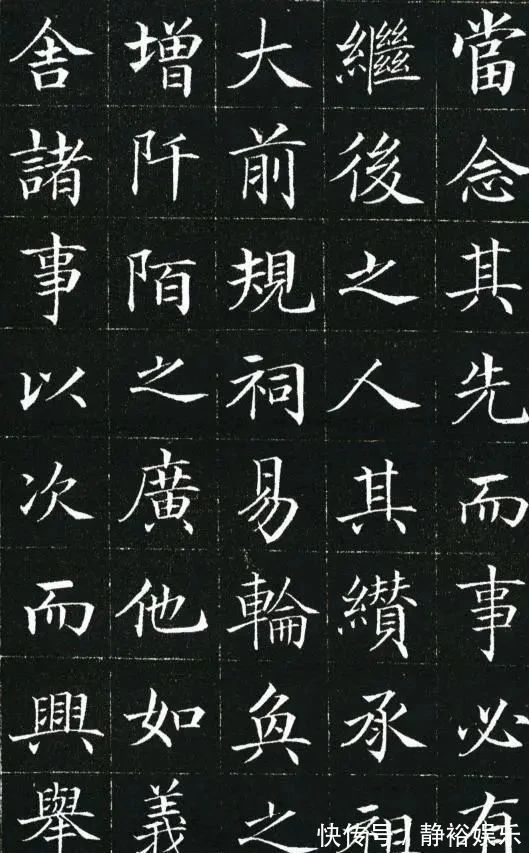 當念其先而事必有
繼後之人其纘承祖
大前規祠易輪奐之
增阡陌之廣他如義
舍諸事以次而興舉
快传号/静裕娱乐